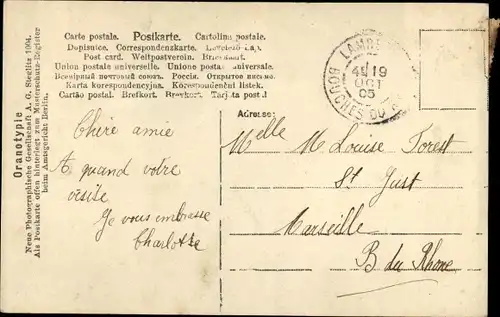 Carte postale. Postkarte. Cartolina postale.
Dopisnice. Correspondenzkarte.
Post card. Weltpostverein.
Union postale universelle. Unione postale universale.
Всемірный почтовый союзъ. Россія. Открытое письмо.
Karta korespondencyjna. Korespondenční lístek.
Cartão postal. Brefkort. Brevkort. Tarjeta postal
Oranotypie
Neue Photographische Gesellschaft A. G. Steglitz 1904.
Als Postkarte offen hinterlegt zum Musterschutz-Register
beim Amtsgericht Berlin.
LAMB
19
OCT
05
BOUCHES DU
Adresse:
Chère amie
A quand votre
visite
Je vous embrasse
Charlotte
Melle M Louise Forest
St Just
Marseille
B du Rhone